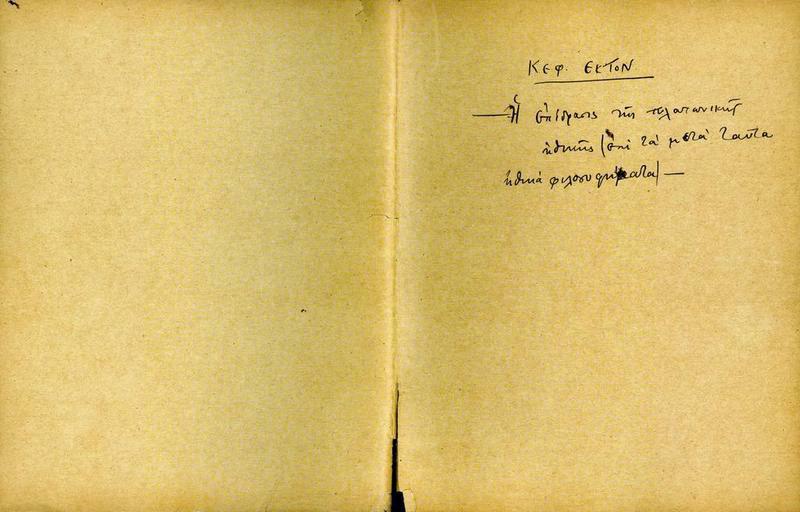 ΚΕΦ. ΕΚΤΟΝ
— Ἡ ἐπίδρασις τῆς πλατωνικῆς
ἠθικῆς (ἐπὶ τὰ μετὰ ταῦτα
ἠθικὰ φιλοσοφήματα) —